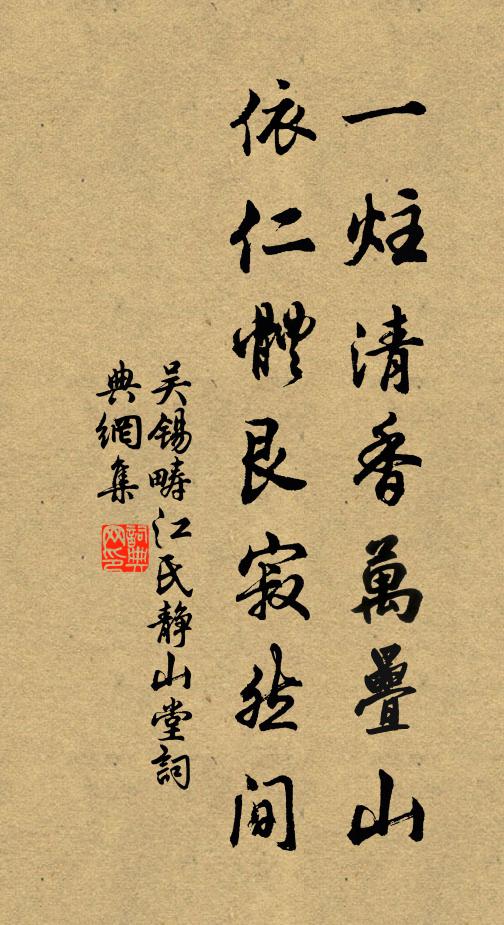 一炷清香萬疊山
依仁體艮寂然間
吴錫疇江氏静山堂詞
典網集
詞典网印